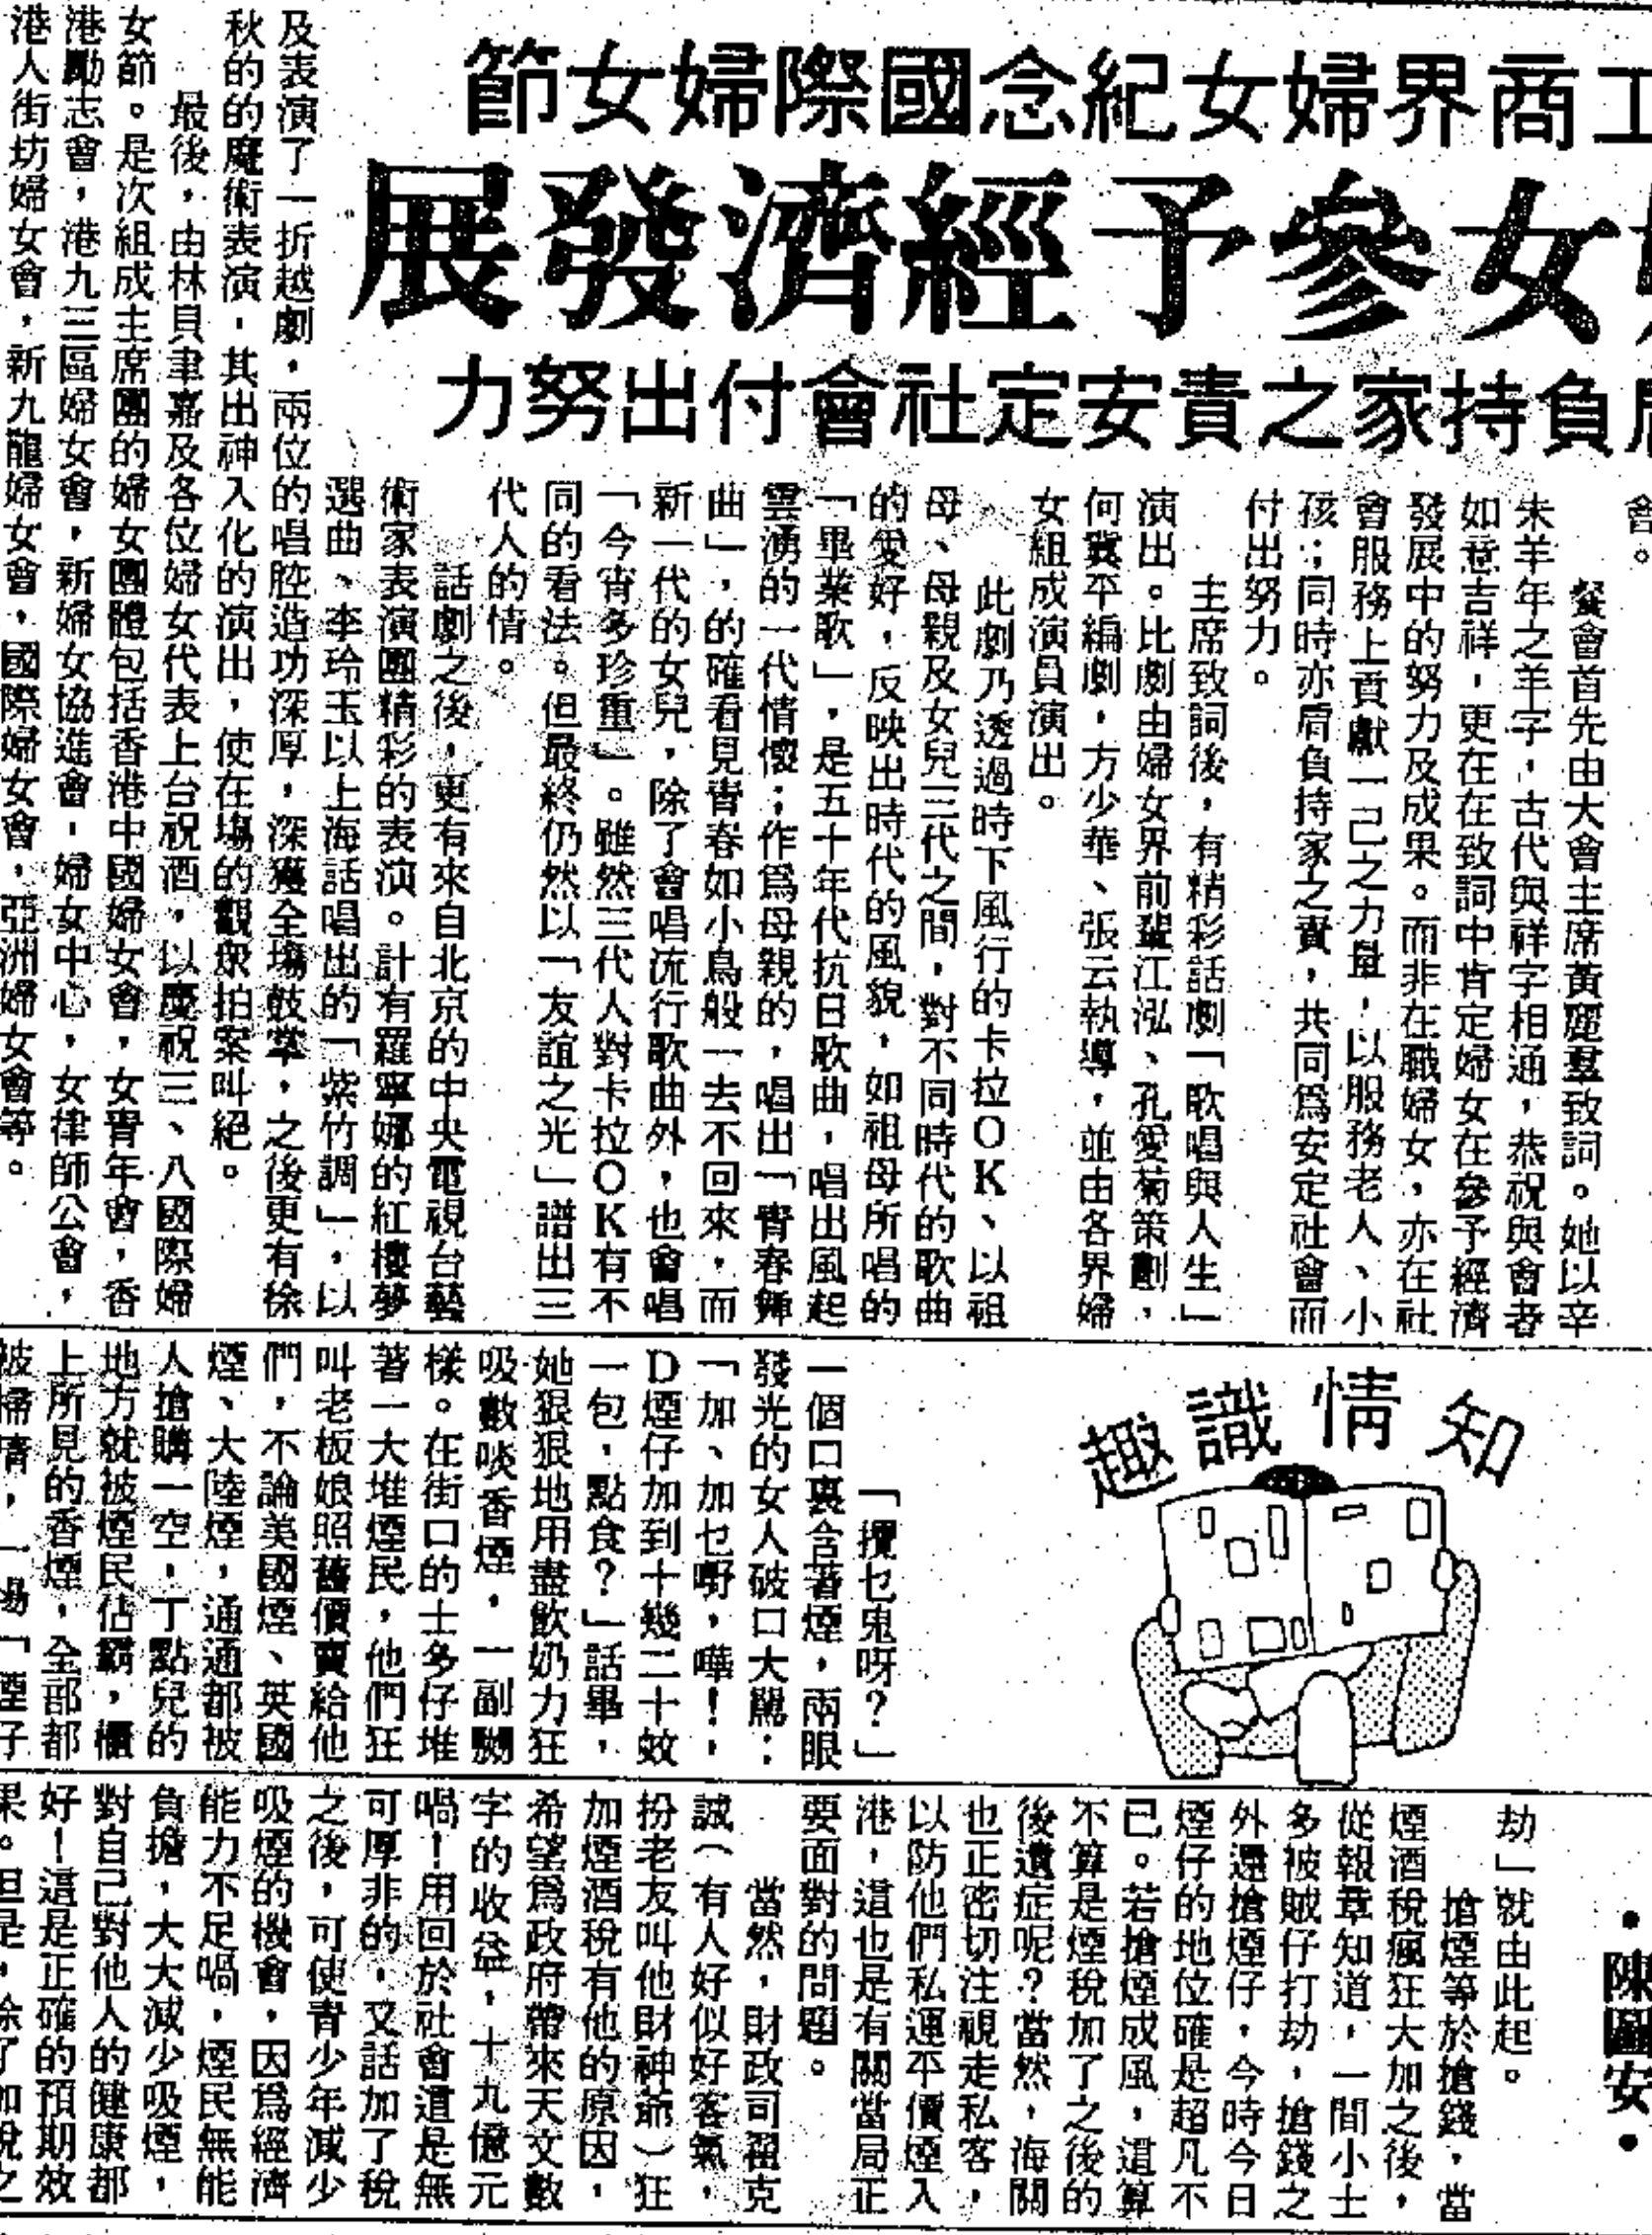 工商界婦女紀念國際婦女節
女參予經濟發展
負持家之責安定社會付出努力
會。
餐會首先由大會主席黃麗羣致詞。她以辛
朱羊年之羊字,古代與祥字相通,恭祝與會者
如意吉祥,更在在致詞中肯定婦女在參予經濟
發展中的努力及成果。而非在職婦女,亦在社
會服務上貢獻一己之力量,以服務老人、小
孩;同時亦肩負持家之責,共同爲安定社會而
付出努力。
主席致詞後,有精彩話劇「歌唱與人生」
演出。比劇由婦女界前輩江泓、孔愛菊策劃,
何冀平編劇,方少華、張云執導,並由各界婦
女組成演員演出。
此劇乃透過時下風行的卡拉OK、以祖
母、母親及女兒三代之間,對不同時代的歌曲
的愛好,反映出時代的風貌,如祖母所唱的
「畢業歌」,是五十年代抗日歌曲,唱出風起
雲湧的一代情懷;作爲母親的,唱出「青春舞
曲」,的確看見青春如小鳥般一去不回來,而
新一代的女兒,除了會唱流行歌曲外,也會唱
「今宵多珍重」。雖然三代人對卡拉OK有不
同的看法。但最終仍然以「友誼之光」譜出三
代人的情。
話劇之後,更有來自北京的中央電視台藝
術家表演團精彩的表演。計有羅寧娜的紅樓夢
選曲、李玲玉以上海話唱出的「紫竹調」,以
及表演了一折越劇,兩位的唱腔造功深厚,深獲全場鼓掌,之後更有徐
秋的的魔術表演,其出神入化的演出,使在場的觀衆拍案叫絕。
最後,由林貝聿嘉及各位婦女代表上台祝酒,以慶祝三、八國際婦
女節。是次組成主席團的婦女團體包括香港中國婦女會,女青年會,香
港勵志會,港九三區婦女會,新婦女協進會,婦女中心,女律師公會,
港人街坊婦女會,新九龍婦女會,國際婦女會,亞洲婦女會等。
知情識趣
·陳圖安·
「攪乜鬼呀?」
一個口裏含著煙,兩眼
發光的女人破口大罵:
「加、加乜嘢,嘩!,
D煙仔加到十幾二十蚊
一包,點食?」話畢,
她狠狠地用盡飲奶力狂
吸數啖香煙,一副嬲
樣。在街口的士多仔堆
著一大堆煙民,他們狂
叫老板娘照舊價賣給他
們,不論美國煙、英國
煙、大陸煙,通通都被
人搶購一空,丁點兒的
地方就被煙民佔霸,櫃
上所見的香煙,全部都
被掃清,一場「煙子
劫」就由此起。
搶煙等於搶錢,當
煙酒稅瘋狂大加之後,
從報章知道,一間小士
多被賊仔打劫,搶錢之
外還搶煙仔,今時今日
煙仔的地位確是超凡不
已。若搶煙成風,這算
不算是煙稅加了之後的
後遺症呢?當然,海關
也正密切注視走私客,
以防他們私運平價煙入
港,這也是有關當局正
要面對的問題。
當然,財政司翟克
誠(有人好似好客氣,
扮老友叫他財神爺)狂
加煙酒稅有他的原因,
希望爲政府帶來天文數
字的收益,十九億元
喎!用回於社會這是無
可厚非的,又話加了稅
之後,可使青少年減少
吸煙的機會,因爲經濟
能力不足喎,煙民無能
負擔,大大減少吸煙,
對自己對他人的健康都
好!這是正確的預期效
果。但是,除了加稅之